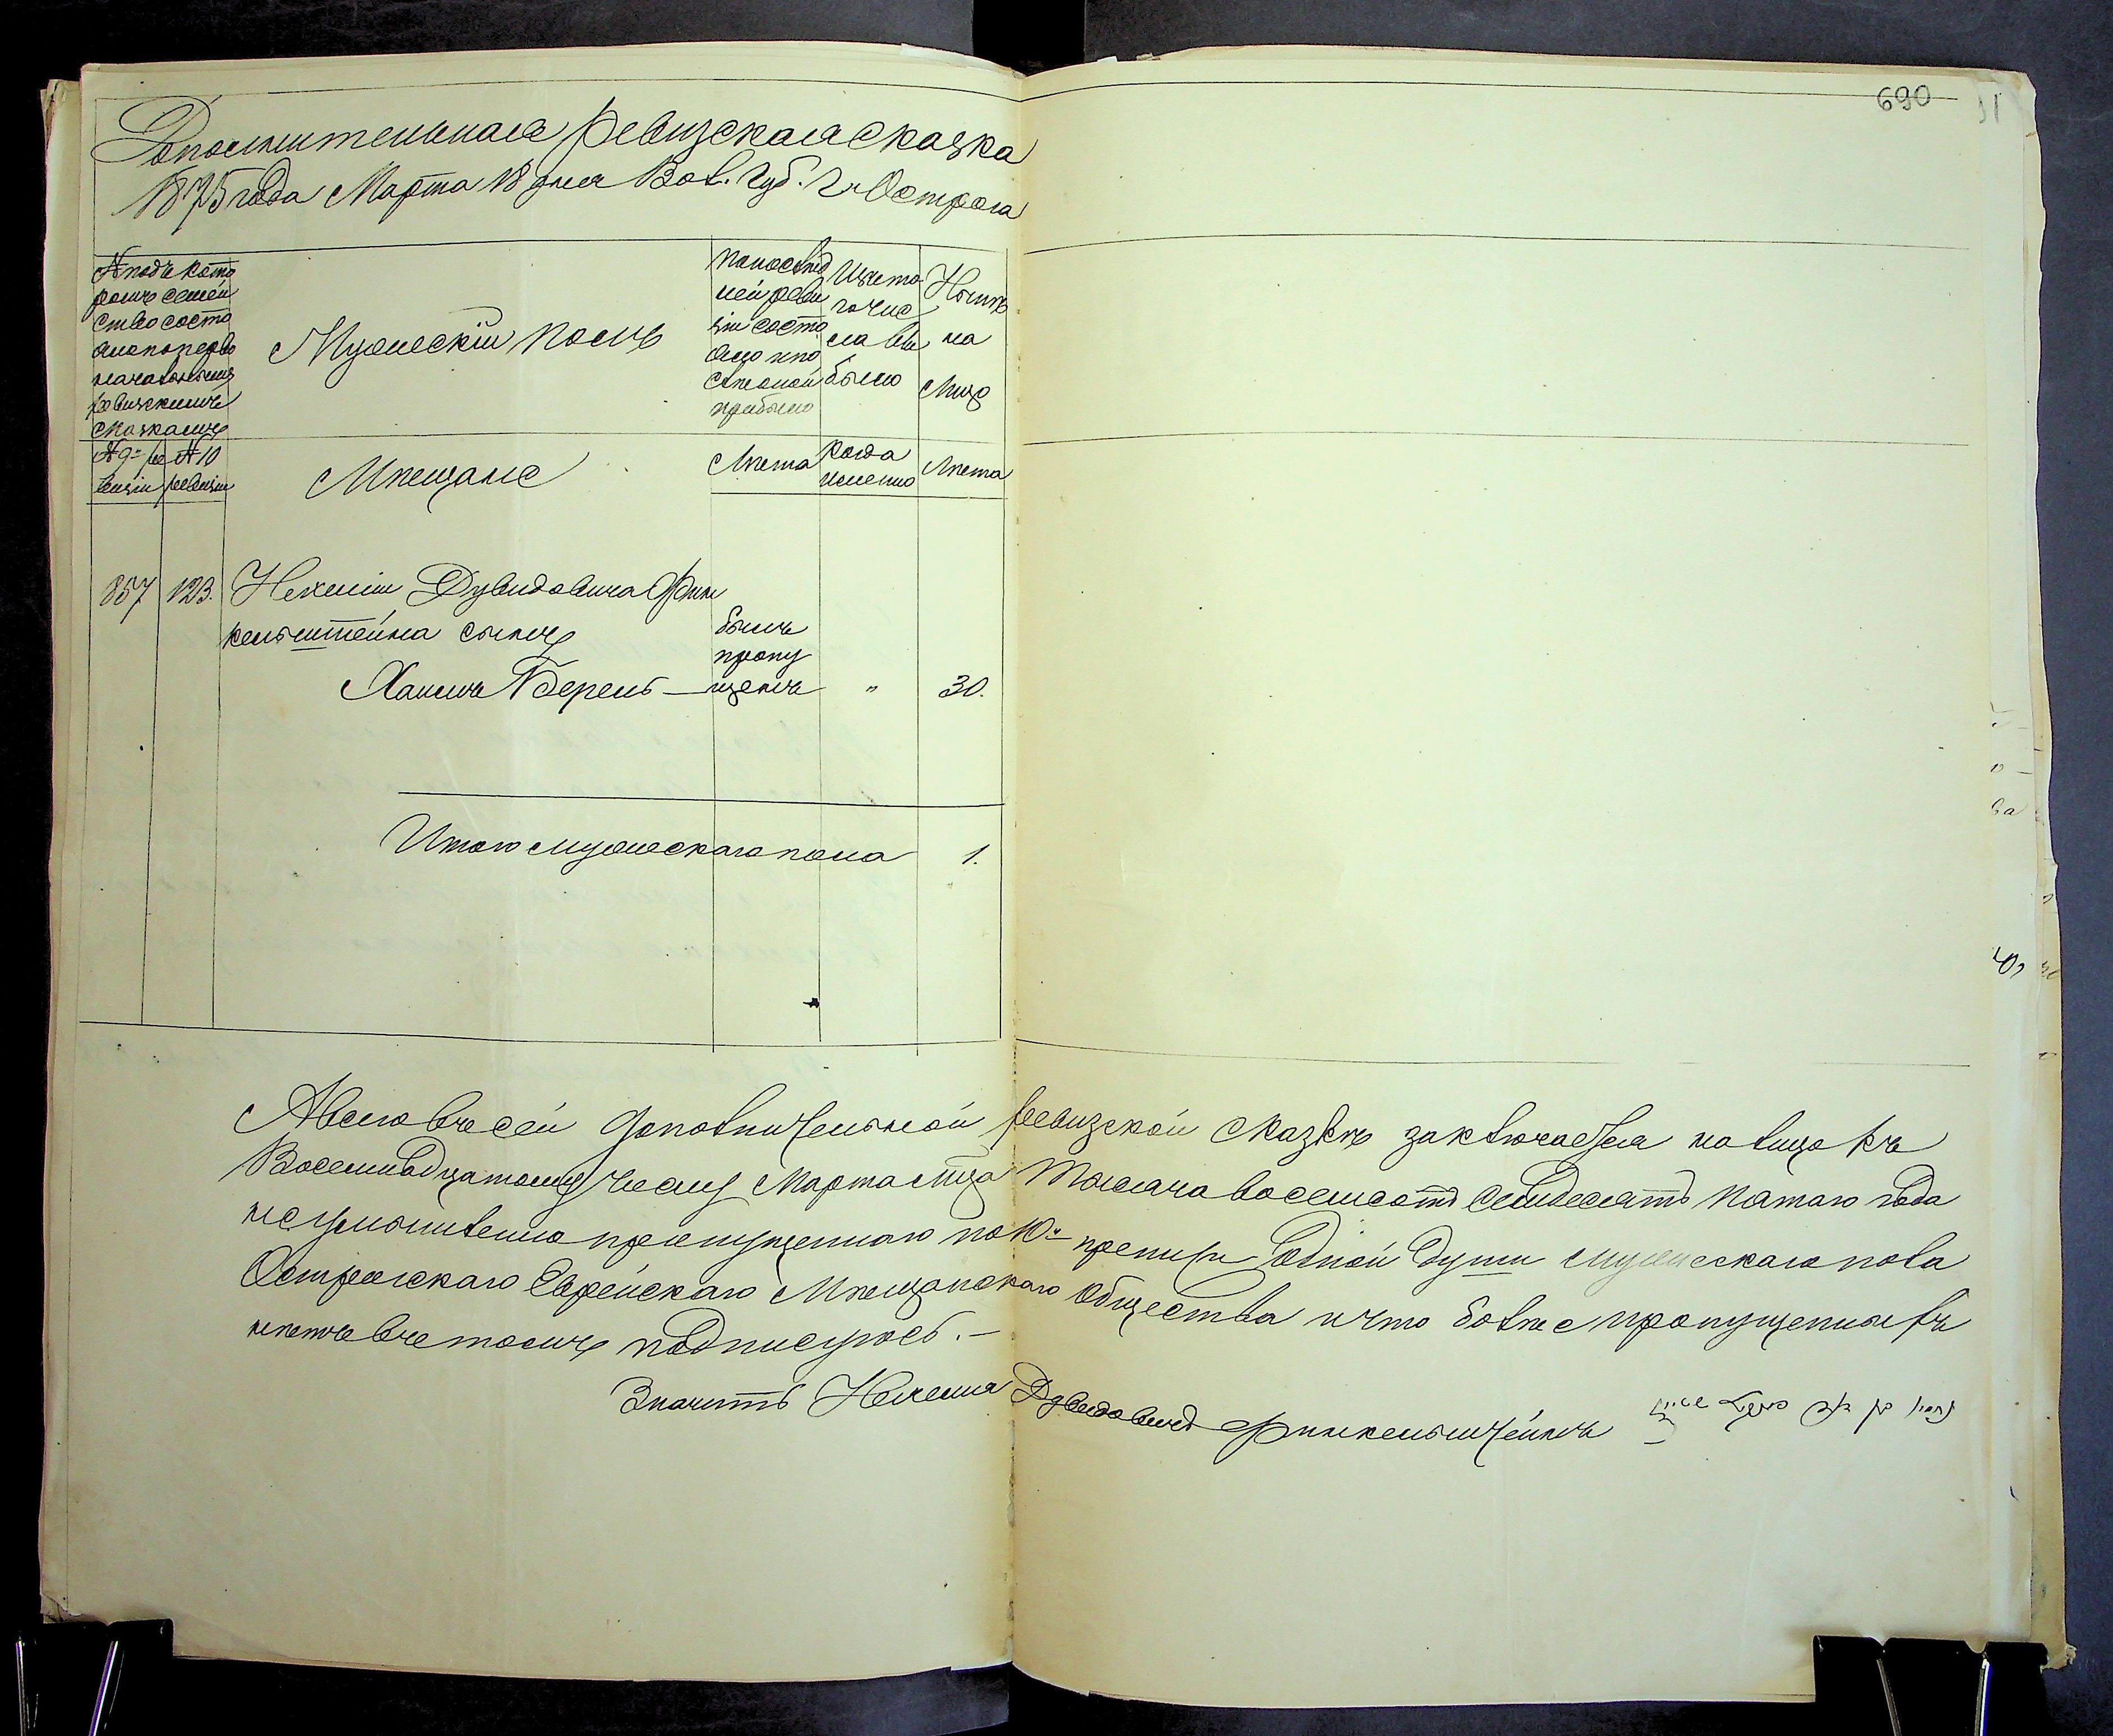 690
Дополнительная Ревизская сказка
1875 года Марта 18 дня Вол. Губ. г. Острога
№ подъ кото
рымъ семей
ство состо
яло по перво
начальнымъ
ревизскимъ
сказкамъ
Мужескій полъ
По послѣд
ней реви
зіи состо
яло и по
слѣ оной
прибыло
Изъ то
го чис
ла вы
было
Нынѣ
на
лицо
№ 9й ре
визіи
№ 10
ревизіи
Мѣщане
Лѣта
когда
именно
Лѣта
857 123. Нехеміи Дувидовича Фин
кельштейна сынъ
Хаимъ Берель — былъ
пропу
щенъ " 30.
Итого мужескаго пола 1.
А всего въ сей дополнительной ревизской сказкѣ заключается на лицо къ
Восемнадцатому числу Марта м-ца Тысяча восемсотъ семьдесятъ пятаго года
пропущеннаго по 10й одной души мужескаго пола
Острожскаго Еврейскаго Мѣщанскаго общества и что болѣе пропущенныхъ
нѣтъ въ томъ подписуюсь. —
Значитъ Нехемия Дувидовичъ Финкельштейнъ